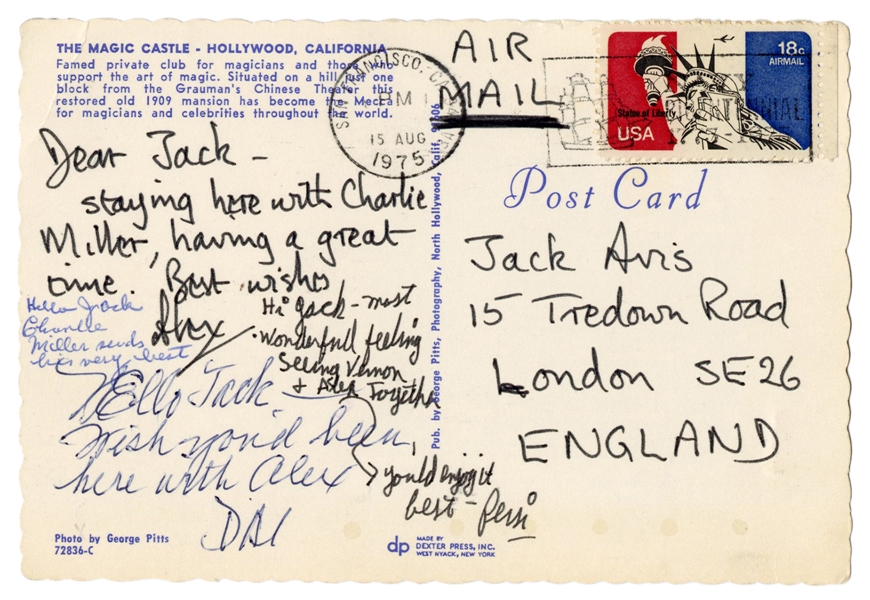 THE MAGIC CASTLE - HOLLYWOOD, CALIFORNIA
Famed private club for magicians and those who
support the art of magic. Situated on a hill just one
block from the Grauman's Chinese Theater this
restored old 1909 mansion has become the Mecca
for magicians and celebrities throughout the world.
Dear Jack -
staying here with Charlie
Miller, having a great
time. Best wishes
Alex
Hello Jack
Charlie
Miller sends
his very best
Hi Jack - most
wonderfull feeling
seeing Vernon
& Alex Together
you'd enjoy it
best - Persi
Hello Jack
Wish you'd been
here with Alex
DAI
Photo by George Pitts
72836-C
Pub. by George Pitts, Photography, North Hollywood, Calif.
dp
MADE BY
DEXTER PRESS, INC.
WEST NYACK, NEW YORK
SAN FRANCISCO, CA
PM
15 AUG
1975
AIR
MAIL
18c
AIRMAIL
Statue of Liberty
USA
Post Card
Jack Avis
15 Tredown Road
London SE26
ENGLAND